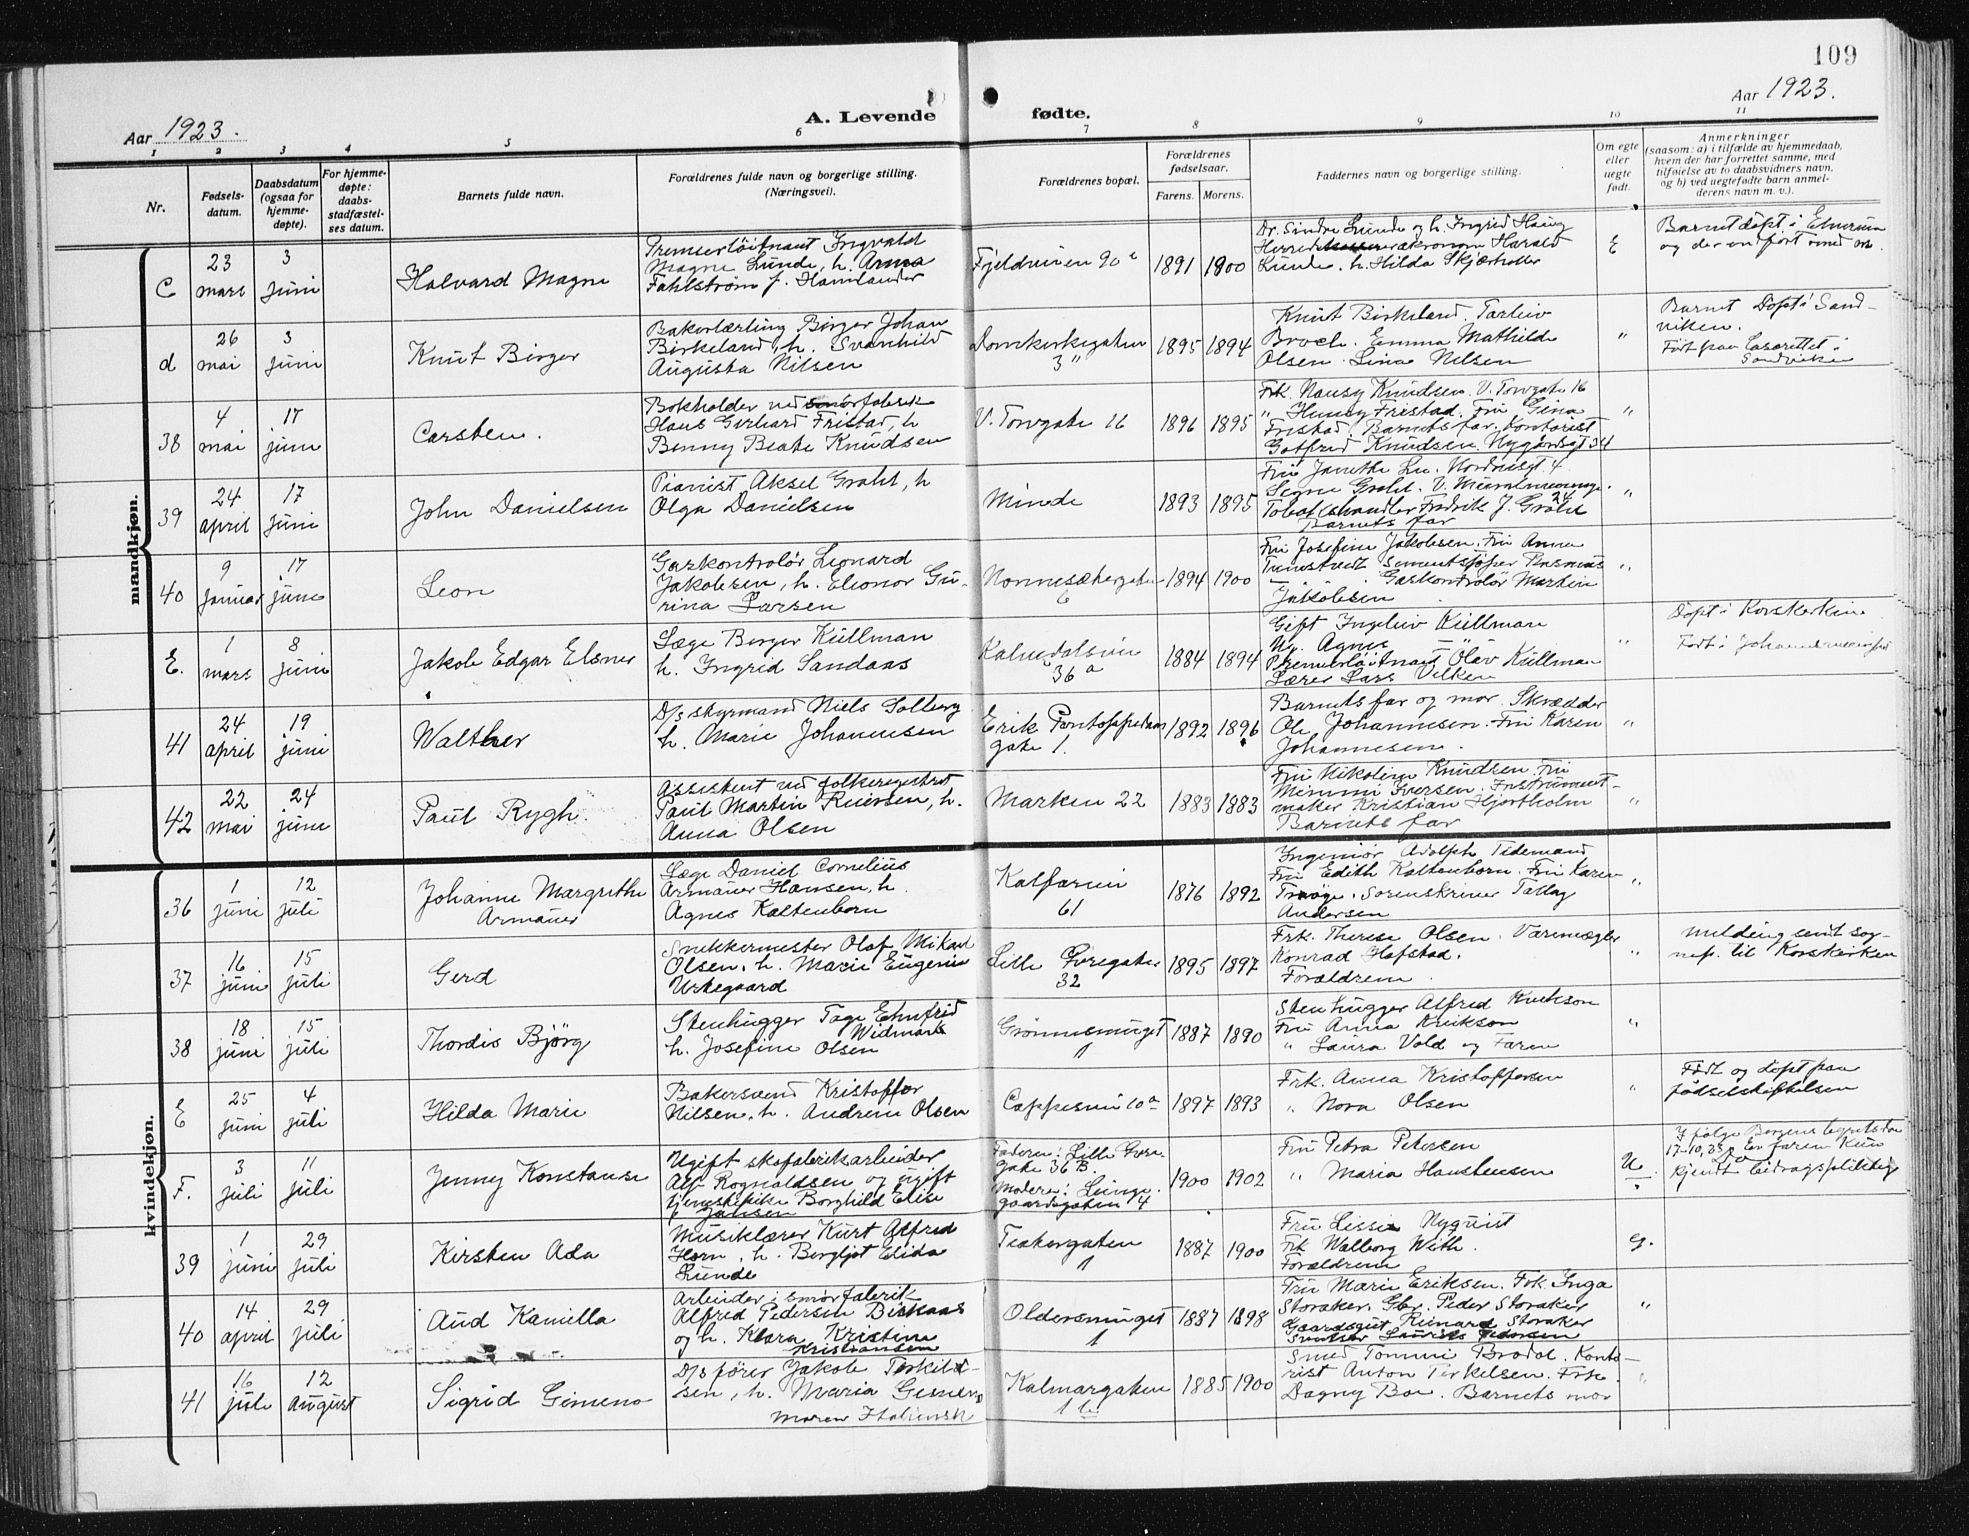 109
Aar 1923.
A. Levende fødte.
Aar 1923.
1 2 3 4 5 6 7 8 9 10 11
Nr.
Fødsels-
datum.
Daabsdatum
(ogsaa for
hjemme-
døpte).
For hjemme-
døpte:
daabs-
stadfæstel-
ses datum.
Barnets fulde navn.
Forældrenes fulde navn og borgerlige stilling.
(Næringsvei).
Forældrenes bopæl.
Forældrenes
fødselsaar.
Farens. Morens.
Faddernes navn og borgerlige stilling.
Om egte
eller
uegte
født.
Anmerkninger
(saasom: a) i tilfælde av hjemmedaab,
hvem der har forrettet samme, med
tilføielse av to daabsvidners navn,
og b) ved uegtefødte barn anmel-
derens navn m. v.).
mandkjøn.
C
23
mars
3
juni
Halvard Magne
Premierløitnant Ingvald
Magne Lunde, h. Anna
Fahlstrøm f. Hamlander
Fjeldveien 90
1891 1900
Dr. Sindre Lunde og h. Ingrid Haug
Harald
Lunde. h. Hilda Skjærholler
E
Barnet døpt i Elverum
og der indført
d
26
mai
3
juni
Knut Birger
Bakerlærling Birger Johan
Birkeland, h. Svanhild
Augusta Nilsen
Domkirkegaten
3
1895 1894
Knut Birkeland. Torleiv
Broch. Emma Mathilde
Olsen. Lina Nilsen
"
Barnet døpt i Sand-
viken.
Født paa Lasarettet i
Sandviken
38
4
mai
17
juni
Carsten.
Bokholder ved smørfabrik
Hans Gerhard Fristad, h
Benny Beate Knudsen
V. Torvgate 16
1896 1895
Frk. Nansy Knudsen. V. Torvgate 16
" Fristad. Fru Gina
Fristad. Barnets far. Kontorist
Gotfred Knudsen. Nygårdsgt 34
"
39
24
april
17
juni
John Danielsen
Pianist Aksel Grahl, h
Olga Danielsen
Minde
1893 1895
Fru Janette Lie. Nordnesgt 4.
Signe Grahl. V.
24
Tobakshandler Fredrik J. Grahl
Barnets far
"
40
9
januar
17
juni
Leon
Gaskontrolør Leonard
Jakobsen, h. Eleonor Gu-
rina Larsen
Nonnesætergaten
6
1894 1900
Fru Josefine Jakobsen. Fru Anna
Sementstøper Rasmus
Gaskontrolør Martin
Jakobsen
"
E.
1
mars
8
juni
Jakob Edgar Elsner
Læge Birger Küllman
h. Ingrid Sandaas
Kalvedalsvein
36 a
1884 1894
Gift Ingeliv Küllman
Ug. Agnes
Premierløitnant Olav Küllman
Lærer Lars Vilken
"
Døpt i Korskirken
Født i
41
24
april
19
juni
Walther
D/s styrmand Niels Solberg
h. Marie Johannesen
Erik Pontoppidans
gate 1.
1892 1896
Barnets far og mor. Skrædder
Ole Johannesen. Fru Karen
Johannesen.
"
42
22
mai
24
juni
Paul Rygh.
Assistent ved folkeregistret
Paul Martin Iversen, h.
Anna Olsen
Marken 22
1883 1883
Fru Nikoline Knudsen. Fru
Mimmi Iversen. Instrument-
maker Kristian Hjortholm
Barnets far
"
kvindekjøn.
36
1
juni
12
juli
Johanne Margrethe
Armauer
Læge Daniel Cornelius
Armauer Hansen, h.
Agnes Kaltenborn
Kalfarvei
61
1876 1892
Ingeniør Adolph Tidemand
Fru Edith Kaltenborn. Fru Karen
Sorenskriver Tallag
Andersen
"
37
16
juni
15
juli
Gerd
Snekkermester Olaf Mikael
Olsen. h. Marie Eugenie
Urkegaard
Lille Øvregaten
32
1895 1897
Frk. Therese Olsen. Varemægler
Konrad Hofstad.
Forældrene.
"
Melding sendt sog-
nep. til Korskirken
38
18
juni
15
juli
Thordis Bjørg
Stenhugger Tage Ehnfrid
Widmark
h. Josefine Olsen
Grønnesmuget
1
1887 1890
Stenhugger Alfred Erikson
Fru Anna Erikson
" Laura Vold og Faren
"
E
25
juni
4
juli
Hilda Marie
Bakersvend Kristoffer
Nilsen. h. Andrine Olsen
Cappesvei 10a
1897 1893
Frk. Anna Kristoffersen
" Nora Olsen
"
Født og døpt paa
fødselsstiftelsen
F.
3
juli
11
juli
Jenny Konstanse
Ugift skofabrikarbeider
Alf Rognaldsen og ugift
tjenestepike Borghild Elise
Jansen
Faderen: Lille Øvre-
gate 36 B.
Moderen: Lunge-
gaardsgaten 4
1900 1902
Fru Petra Petersen
" Maria Haustensen
U.
I følge Bergens byrets dom
17-10,23 er faren kun
kjendt bidragspliktig
39
1
juni
29
juli
Kirsten Ada
Musiklærer Kurt Alfred
Horn, h. Bergljot Elida
Lunde
Teatergaten
1
1887 1900
Fru Lissie Nyquist
Frk Walborg With.
Forældrene
g.
40
14
april
29
juli
Aud Kamilla
Arbeider i smørfabrik
Alfred Pedersen Birknas
og h. Klara Kristine
Kristiansen
Oldersmuget
1
1887 1898
Fru Marie Eriksen. Frk. Inga
Storaker. Gbr. Peder Storaker
Gaardsgut Reinard Storaker
Laurits Pedersen
"
41
16
juli
12
august
Sigrid Gimeno
D/s fører Jakob Terkild-
sen, h. Maria Gimeno
Moren Italiensk
Kalmargaten
1
1885 1900
Smed Tommi Brodal. Konto-
rist Anton Terkelsen. Frk.
Dagny Boe. Barnets mor
"